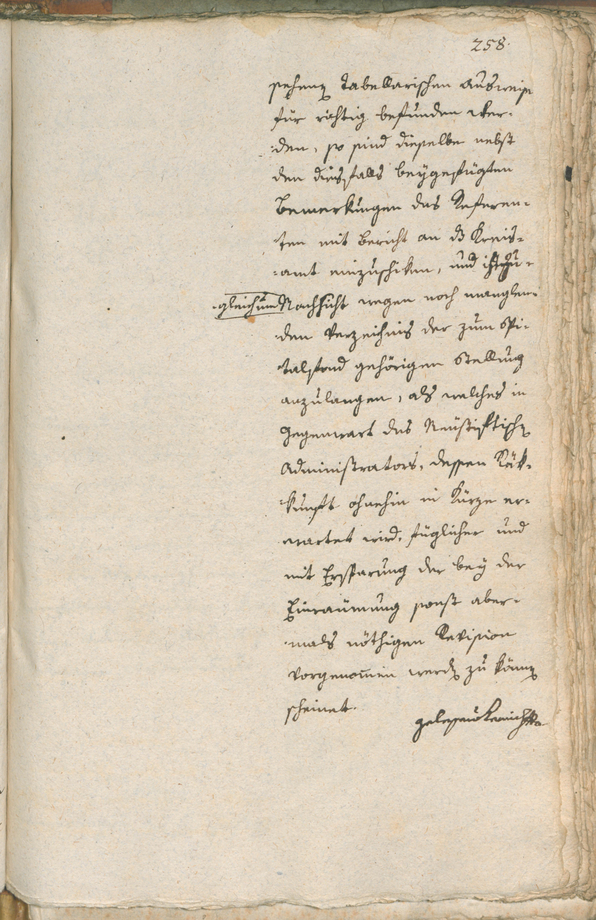 258.
sehenen tabellarischen Ausweise
für richtig befunden wer-
den, so sind dieselbe nebst
den diesfalls beygefügten
Bemerkungen des Referen-
ten mit Bericht an das Kreis-
amt einzuschiken, und
gleich um Nachsicht wegen noch manglen-
den Verzeichnis der zum Spi-
talfond gehörigen Stellung
anzulangen, als welches in
Gegenwart des Neustiftischen
Administrators, dessen Rük-
kunft ohnehin in Kürze er-
wartet wird, füglicher und
mit Ersparung der bey der
Einraümung sonst aber-
mals nöthigen Revision
vorgenommen werden zu können
scheinet.